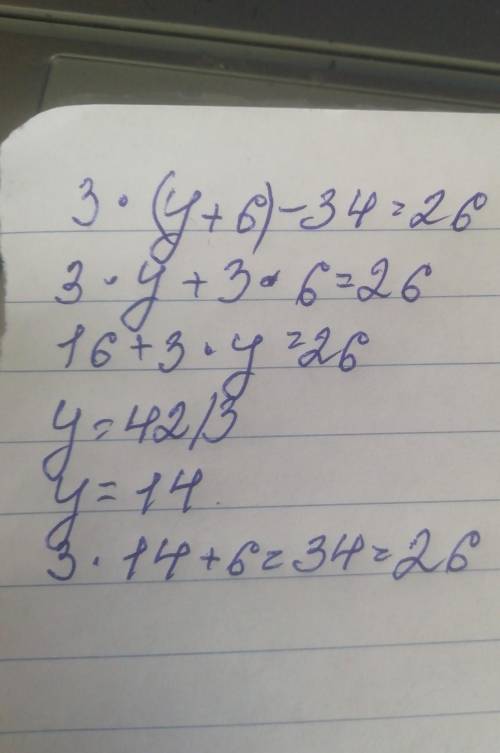 3·(y+6)-34=26
3·y+3·6=26
16+3·y=26
y=42/3
y=14.
3·14+6=34=26